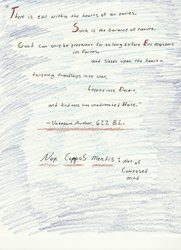 "There is evil within the hearts of all nonies.
Such is the balance of nature.
Good can only be prevalent for so long before Evil musters
its forces
and seizes upon the heart—
twisting friendships into war,
Loyalty into Deceit,
and kindness into unadorned Hate."
-Unknown Author, 622 B.L.
Non Compos Mentis: Not of
Composed
mind